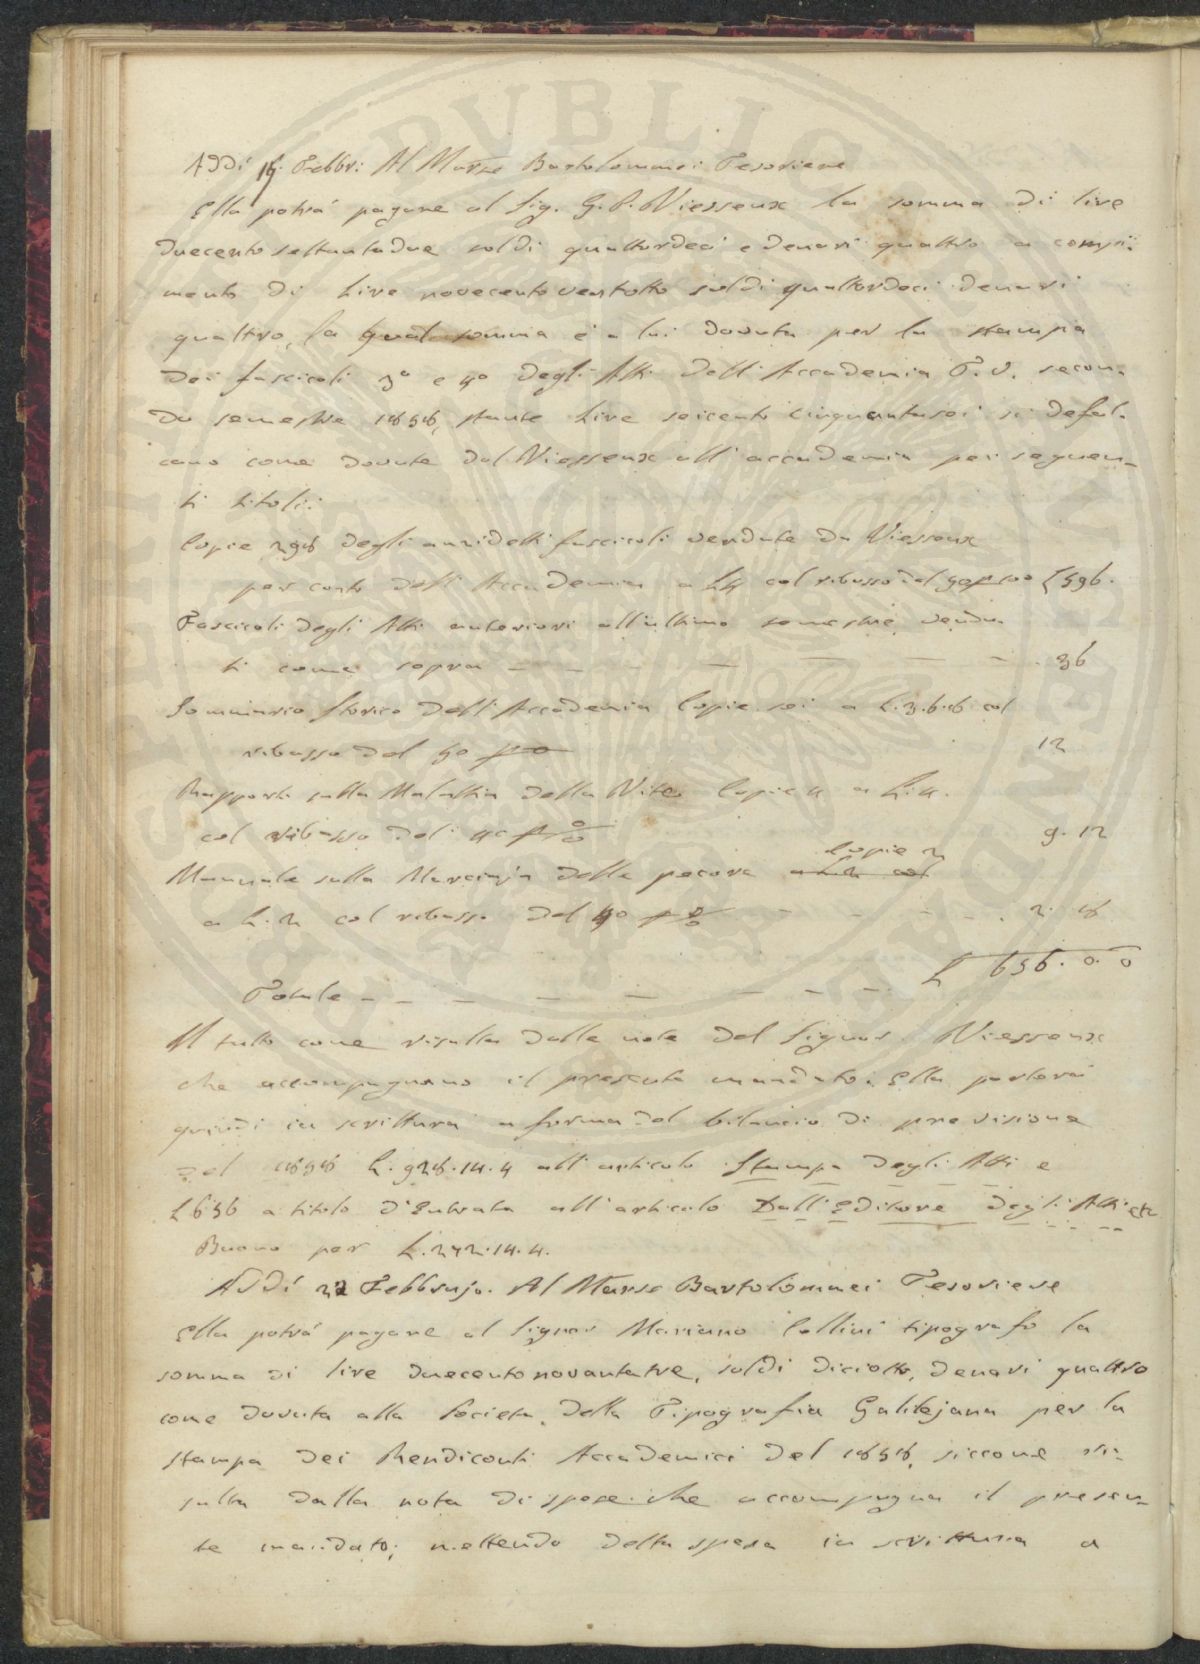 Addì Febbr: Al Marse Bartolommei Tesoriere
Ella potrà pagare al Sig. G. P. Viesseux la somma di lire
duecentosettantadue soldi quattordeci e denari quattro a compi=
mento di Lire novecentoventotto soldi quattordeci denari
quattro, la qual somma è a lui dovuta per la stampa
dei fascicoli 3° e 4° degli Atti dell'Accademia P. V. secon=
do semestre 1858, stante Lire seicento cinquantasei si defal=
cano come dovute dal Viesseux all'accademia pei seguen=
ti titoli:
Copie 298 degli anzidetti fascicoli vendute da Viesseux
per conto dell'Accademia a L4 col ribasso del 50 p 100 £ 596.
Fascicoli degli Atti anteriori all'ultimo semestre vendu=
ti come sopra — — — — — — 36
Sommario Storico dell'Accademia Copie sei a L. 3.6.8 col
ribasso del 40 p 12
Rapporti sulla Malattia della Vite Copie 4 a L. 4.
col ribasso del 40 p % 9. 12
Manuale sulla Marciaja delle pecore copie 2
a L. 2 col ribasso del p % — — — — 2. 8
Totale — — — — — — — — £ 656. 0. 0
Il tutto come risulta dalle note del Signor Viesseux
che accompagnano il presente mandato. Ella porterà
quindi in scrittura a forma del bilancio di previsione
del 1858 L. 928.14.4 all'articolo Stampa degli Atti e
£ 656 a titolo d'Entrata all'articolo Dall'Editore degli Atti etc
Buono per L. 272.14.4.
Addì 22 Febbrajo. Al Marse Bartolommei Tesoriere
Ella potrà pagare al Signor Mariano Cellini tipografo la
somma di lire duecentonovantatre, soldi diciotto, denari quattro
come dovuta alla Società della Tipografia Galilejana per la
stampa dei Rendiconti Accademici del 1858, siccome ri=
sulta dalla nota di spese che accompagna il presen=
te mandato; mettendo detta spesa in scrittura a
PVBLIC